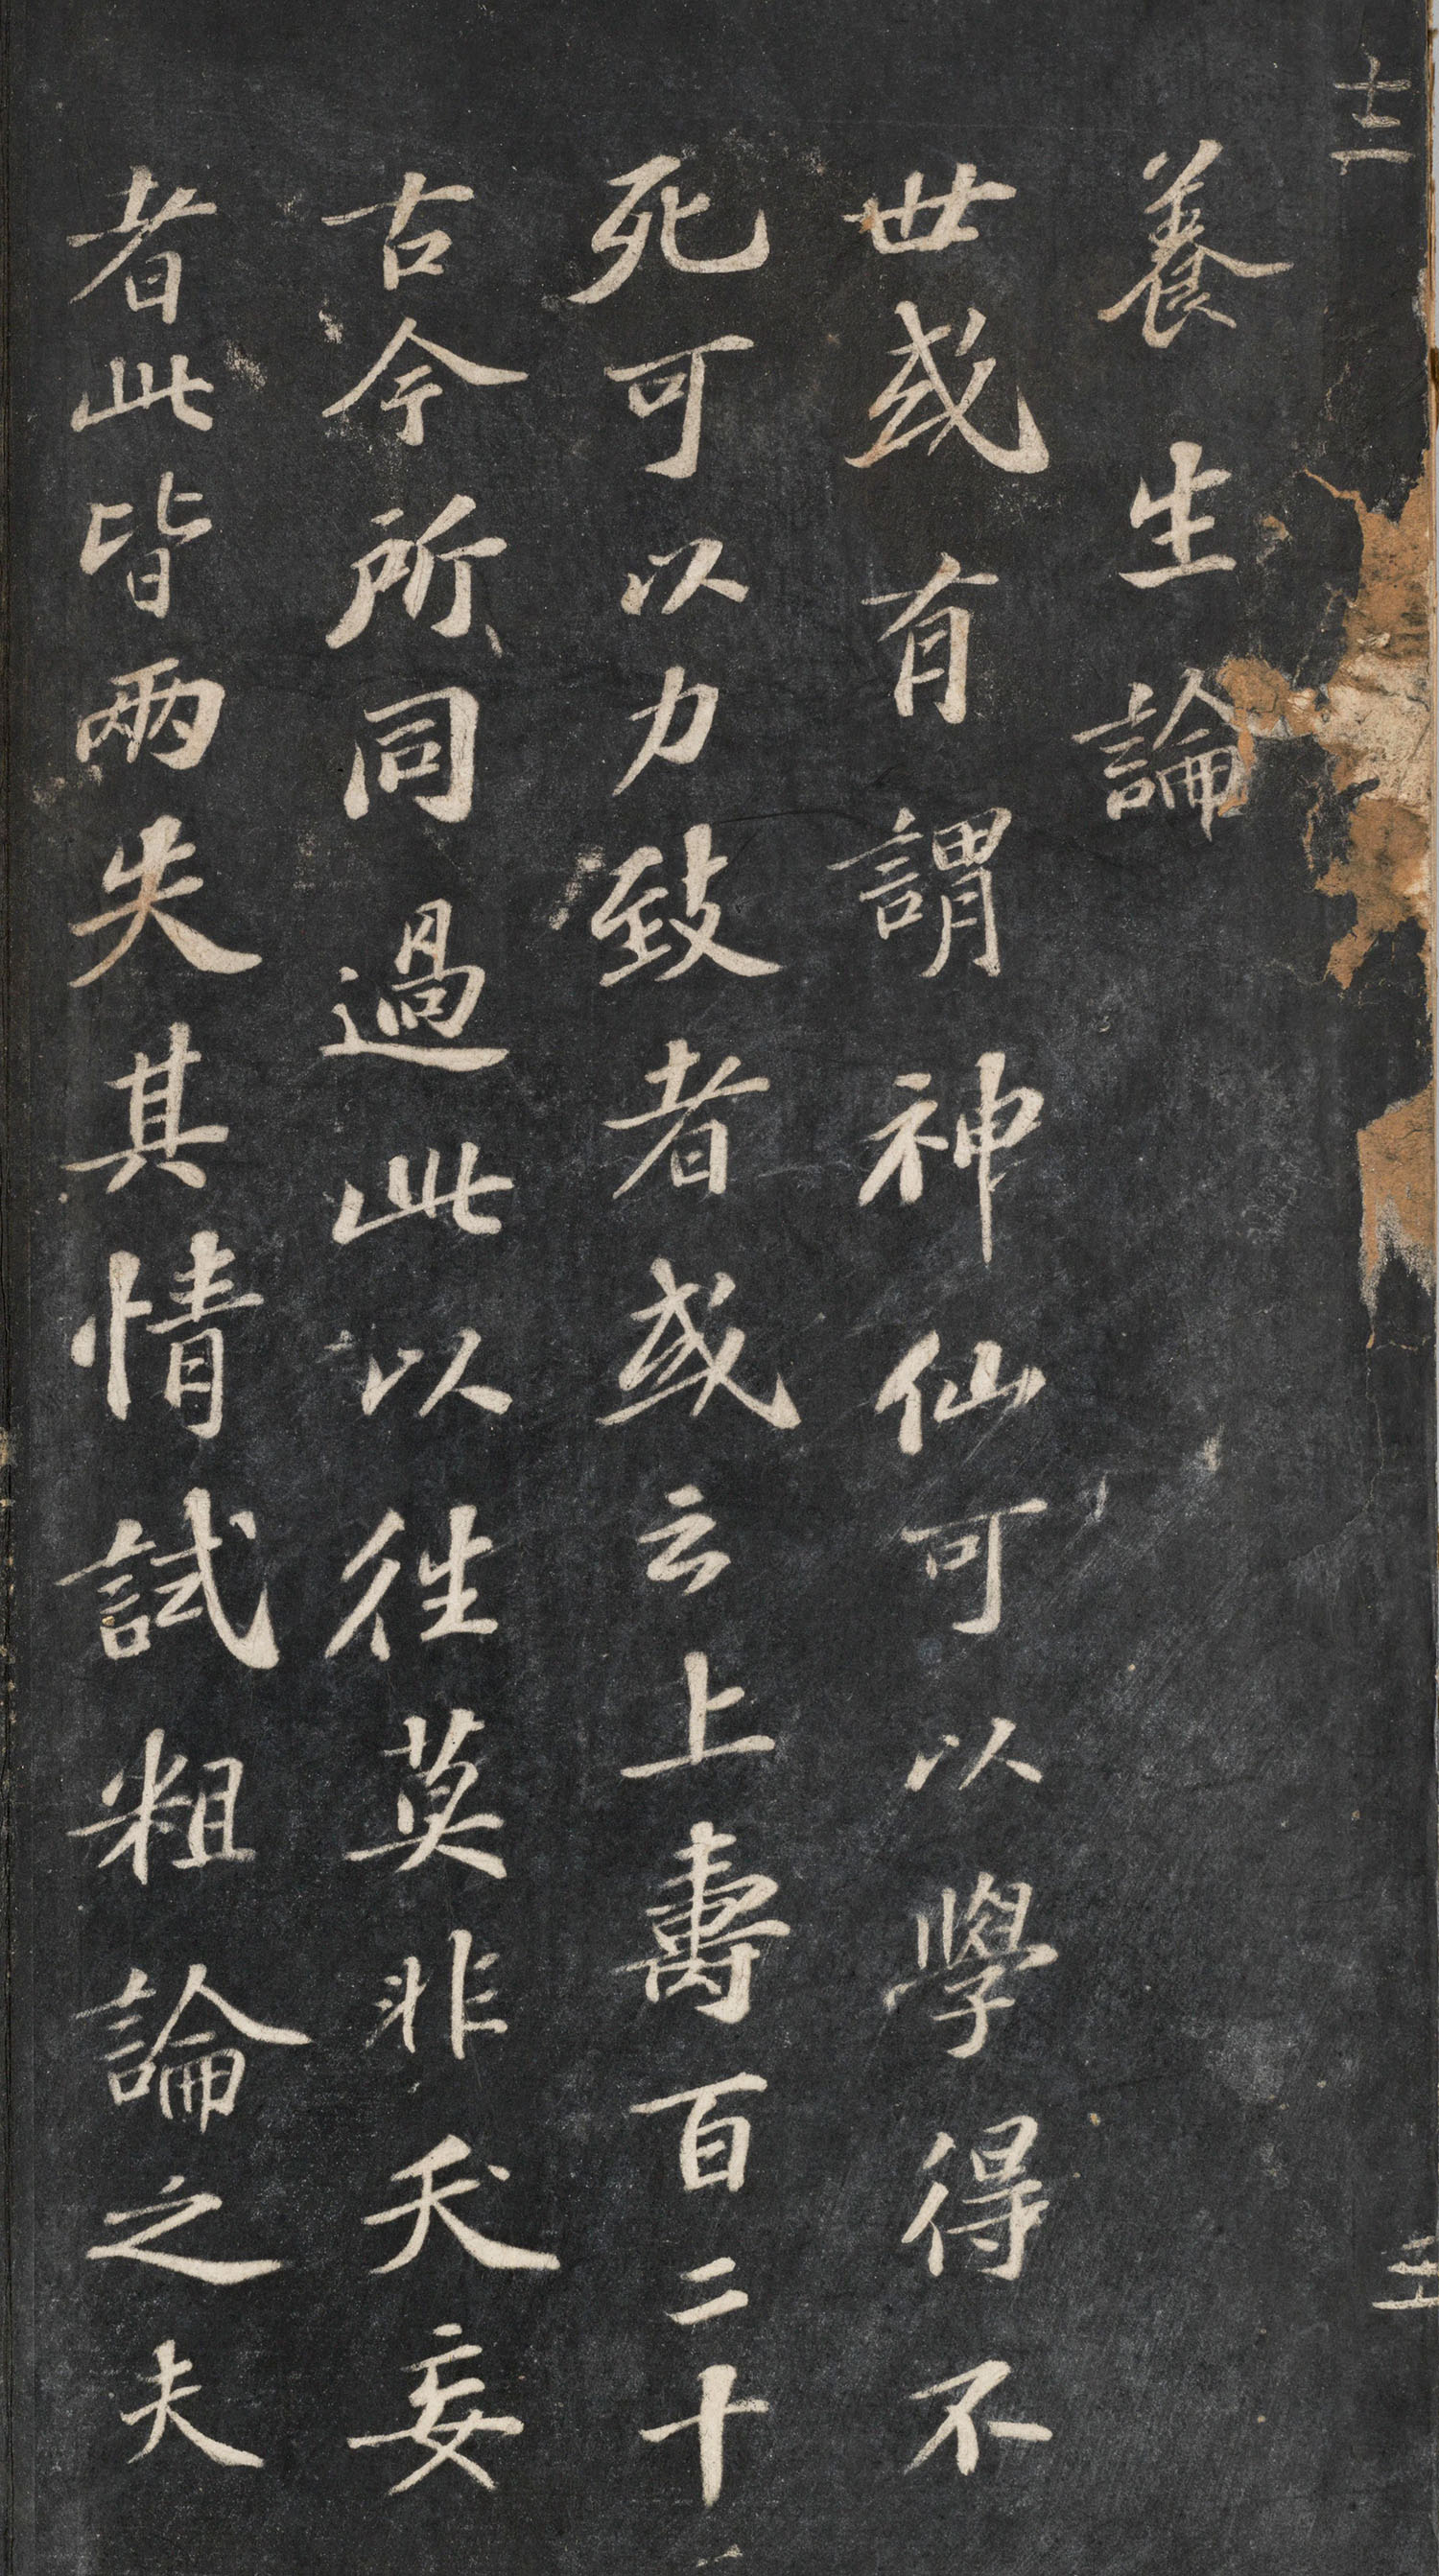 十二
養生論
世或有謂神仙可以學得不
死可以力致者或云上壽百二十
古今所同過此以往莫非夭妄
者此皆兩失其情試粗論之夫